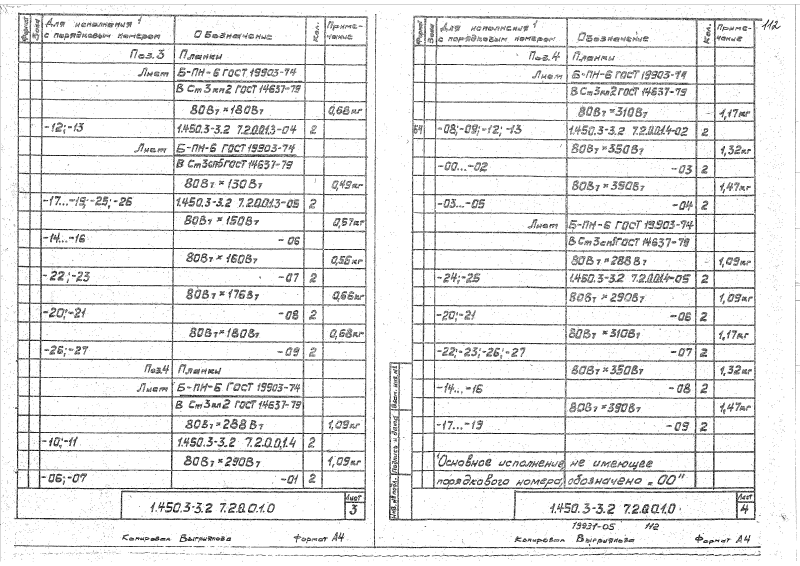 Формат
Зона
Для исполнения¹ с порядковым номером
Обозначение
Кол.
Примечание
Поз.3 Планки
Лист Б-ПН-6 ГОСТ 19903-74
В Ст3кп2 ГОСТ 14637-79
80В7×180В7 0,68кг
-12;-13 1.450.3-3.2 7.2.0.0.1.3-04 2
Лист Б-ПН-6 ГОСТ 19903-74
В Ст3сп5 ГОСТ 14637-79
80В7×130В7 0,49кг
-17...-19;-25;-26 1.450.3-3.2 7.2.0.0.1.3-05 2
80В7×150В7 0,57кг
-14...-16 -06
80В7×160В7 0,56кг
-22;-23 -07 2
80В7×176В7 0,66кг
-20;-21 -08 2
80В7×180В7 0,68кг
-26;-27 -09 2
Поз.4 Планки
Лист Б-ПН-6 ГОСТ 19903-74
В Ст3кп2 ГОСТ 14637-79
80В7×288В7 1,09кг
-10;-11 1.450.3-3.2 7.2.0.0.1.4 2
80В7×290В7 1,09кг
-06;-07 -01 2
1.450.3-3.2 7.2.0.0.1.0
Лист
3
Копировал Выгриянова Формат А4
112
Формат
Зона
Для исполнения¹ с порядковым номером
Обозначение
Кол.
Примечание
Поз.4 Планки
Лист Б-ПН-6 ГОСТ 19903-74
В Ст3кп2 ГОСТ 14637-79
80В7×310В7 1,17кг
Б4 -08;-09;-12;-13 1.450.3-3.2 7.2.0.0.1.4-02 2
80В7×350В7 1,32кг
-00...-02 -03 2
80В7×390В7 1,47кг
-03...-05 -04 2
Лист Б-ПН-6 ГОСТ 19903-74
В Ст3сп5 ГОСТ 14637-79
80В7×288В7 1,09кг
-24;-25 1.450.3-3.2 7.2.0.0.1.4-05 2
80В7×290В7 1,09кг
-20;-21 -06 2
80В7×310В7 1,17кг
-22;-23;-26;-27 -07 2
80В7×350В7 1,32кг
-14...-16 -08 2
80В7×390В7 1,47кг
-17...-19 -09 2
¹Основное исполнение, не имеющее
порядкового номера, обозначено „00”
Инв.№ подл.
Подпись и дата
Взам. инв.№
1.450.3-3.2 7.2.0.0.1.0
Лист
4
19931-05 112
Копировал Выгриянова Формат А4